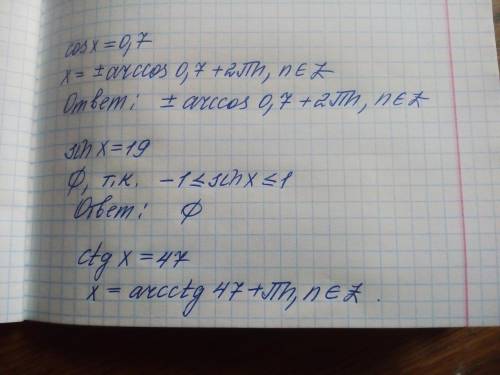 cosx=0,7
x=±arccos 0,7+2πn, n∈Z
Ответ: ±arccos 0,7+2πn, n∈Z
sin x=19
∅, т.к. -1≤sin x≤1
Ответ: ∅
ctg x=47
x=arcctg 47+πn, n∈Z.